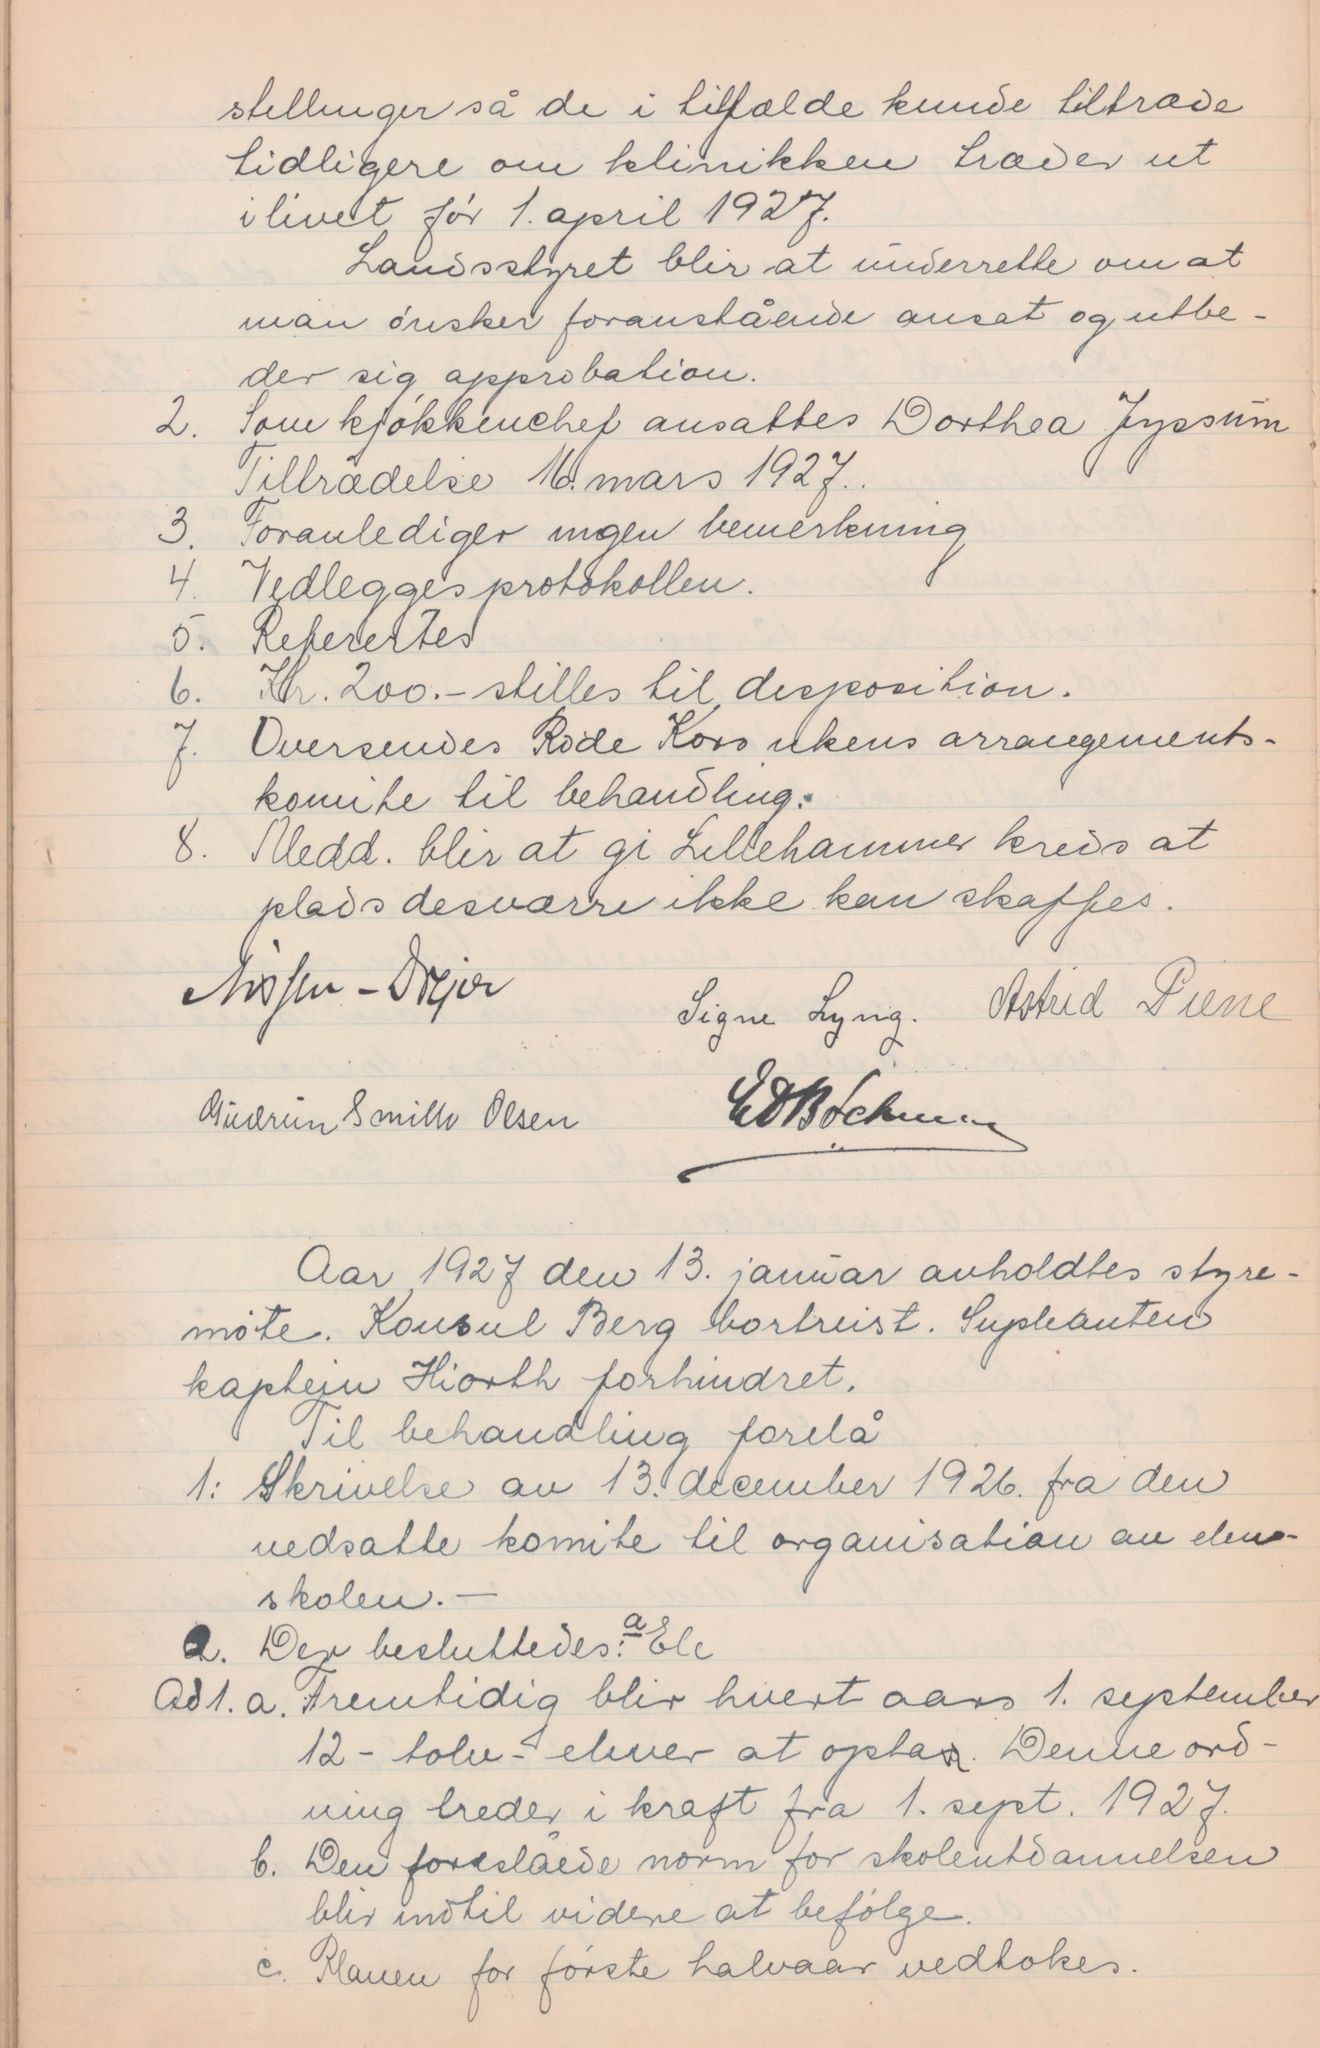 stellinger så de i tilfælde kunde tiltræde
tidligere om klinikken træder ut
i livet før 1. april 1927.
Landsstyret blir at underrette om at
man ønsker foranstående ansat og utbe-
der sig approbation.
2. Som kjøkkenchef ansattes Dorthea Jyssum
Tiltrædelse 16. mars 1927.
3. Foranlediger ingen bemerkning
4. Vedlegges protokollen.
5. Refererтes
6. Kr. 200.- stilles til disposition.
7. Oversendes Røde Kors ukens arrangements-
komite til behandling.
8. Medd. blir at gi Lillehammer kreds at
plads desværre ikke kan skaffes.
Nissen-Drejer
Signe Lyng. Astrid Piene
Gudrun Smith Olsen
Aar 1927 den 13. januar avholdtes styre-
møte. Konsul Berg bortreist. Supleanten
kaptein Hiorth forhindret.
Til behandling forelå
1: Skrivelse av 13. december 1926. fra den
nedsatte komite til organisation av elev-
skolen. -
2. Der besluttedes: a Ele
Ad 1. a. Fremtidig blir hvert aars 1. september
12 - tolv - elever at opta. Denne ord-
ning treder i kraft fra 1. sept. 1927.
b. Den foreslåede norm for skoleutdannelsen
blir indtil videre at befølge.
c. Planen for første halvaar vedtokes.